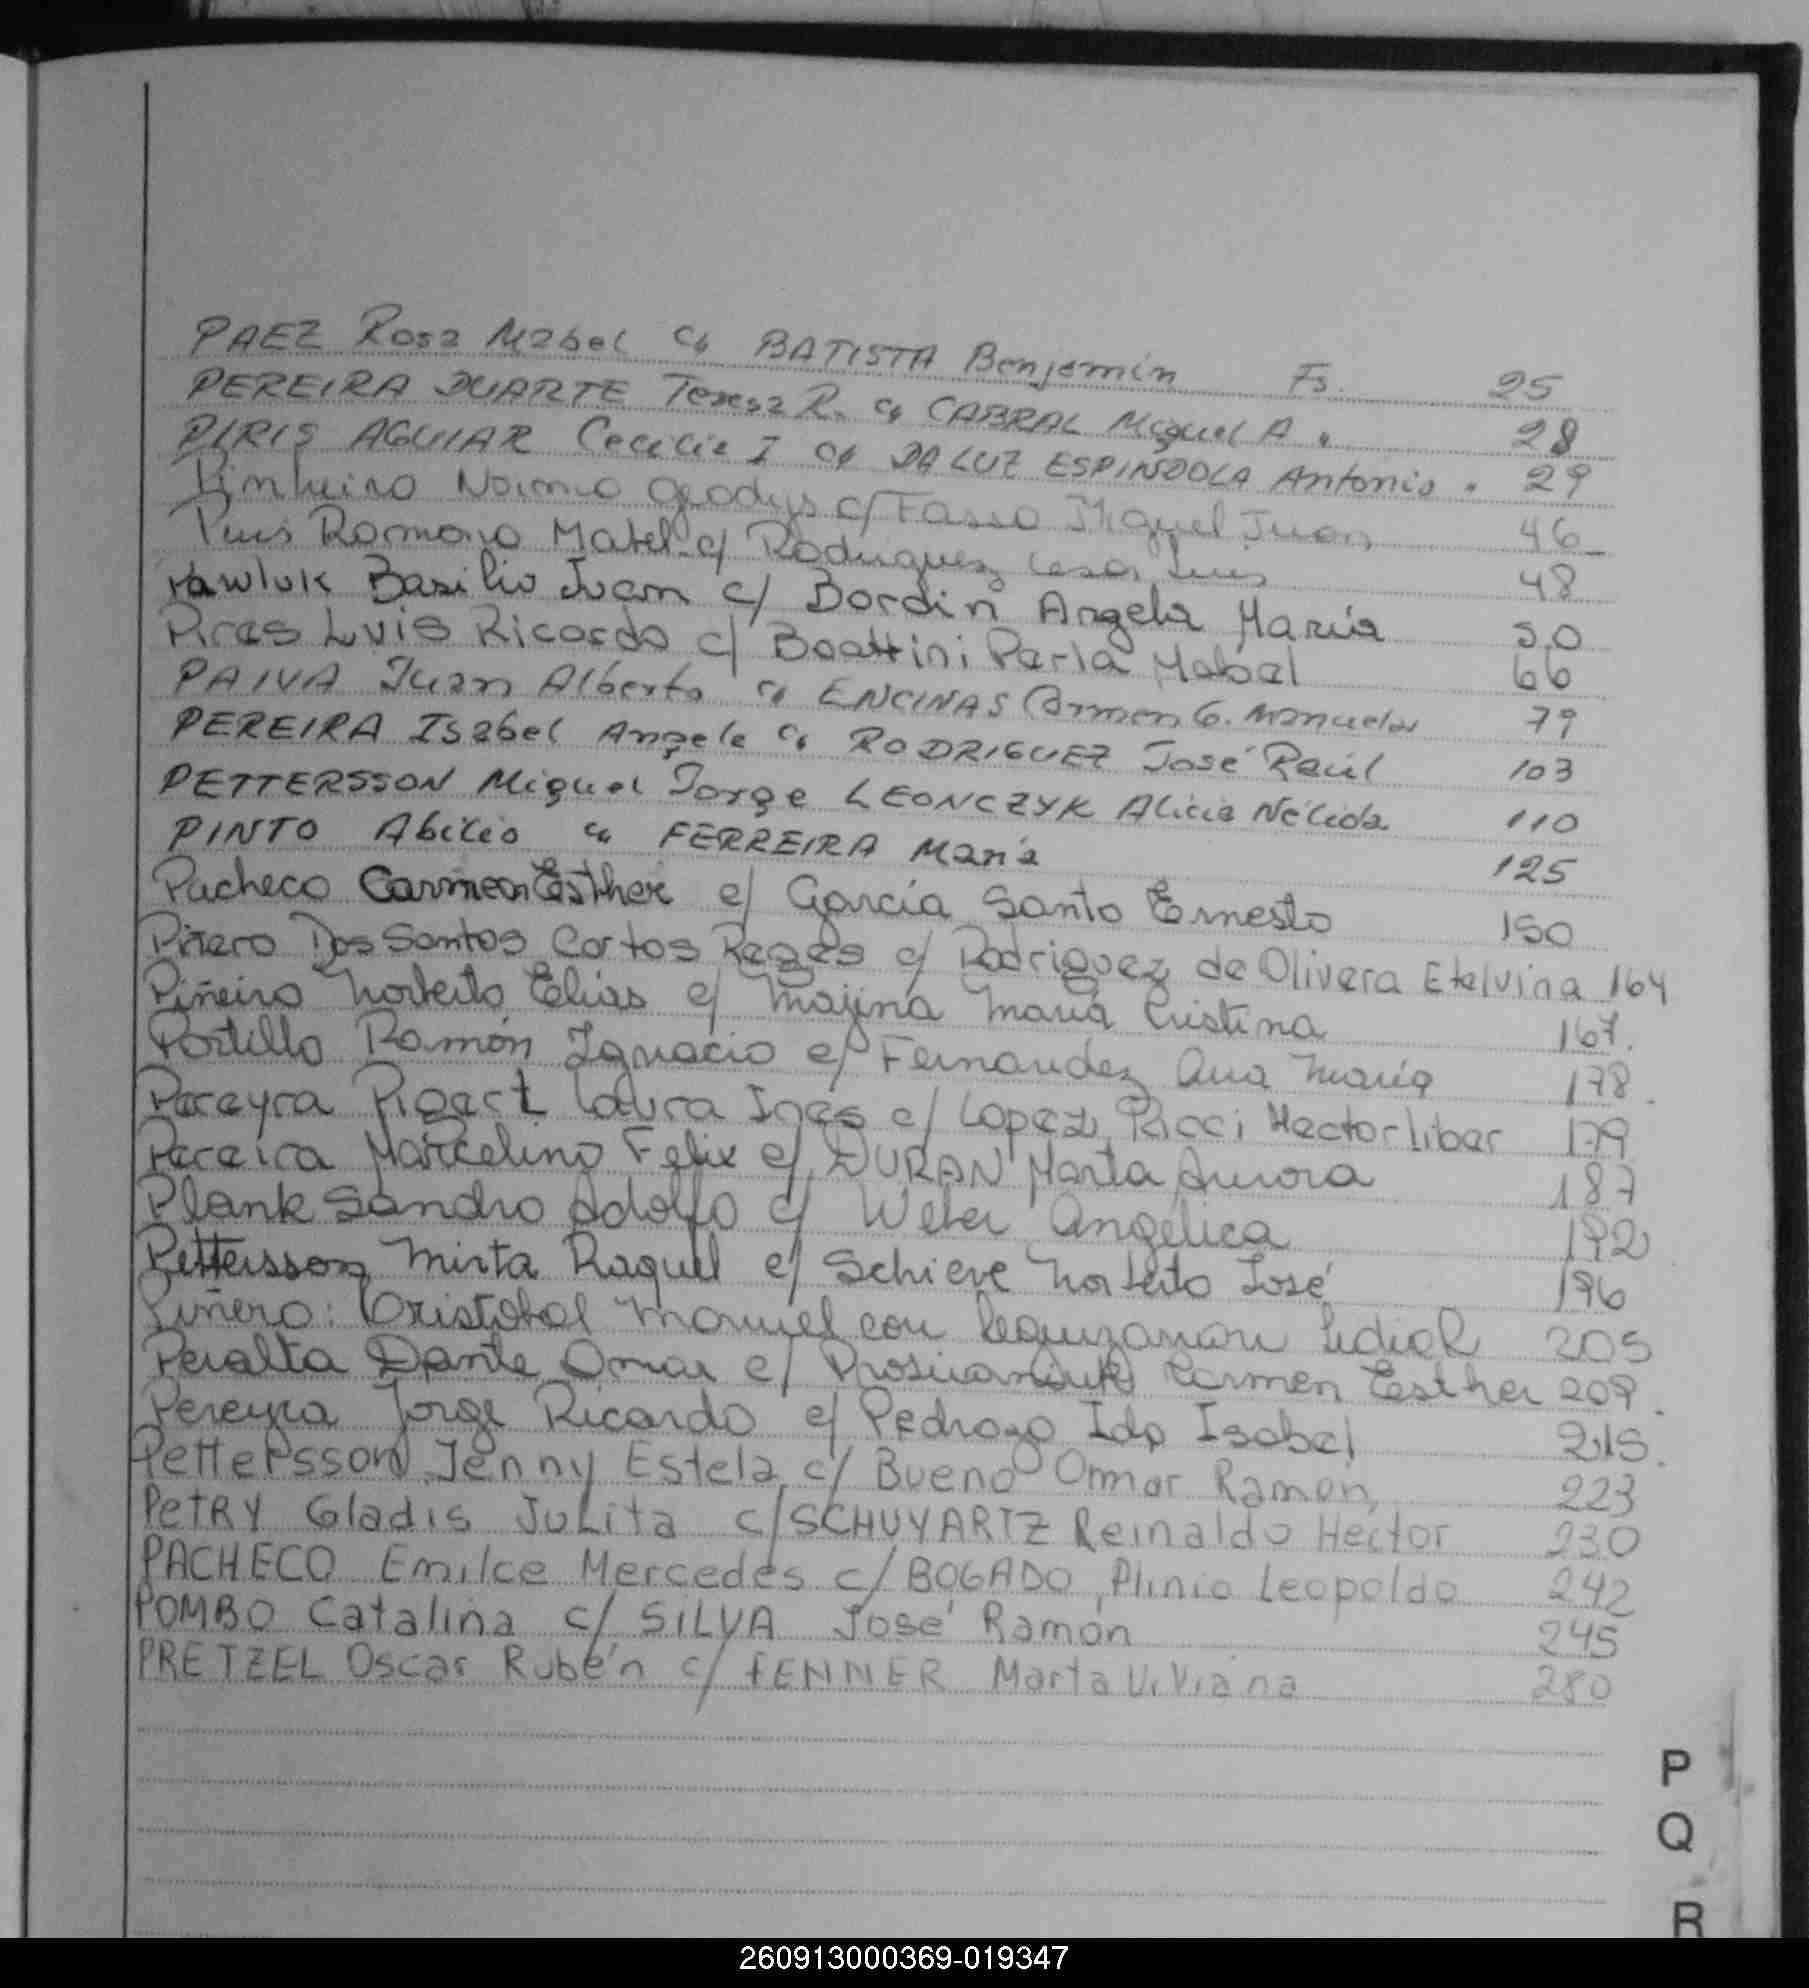 PAEZ Rosa Mabel c/ BATISTA Benjamin Fs. 25
PEREIRA DUARTE Teresa R. c/ CABRAL Miguel A. 28
PIRIS AGUIAR Cecilia I c/ DA LUZ ESPINDOLA Antonio. 29
Pinheiro Norma Gladys c/ Fasso Miguel Juan 46
Ramona Mabel c/ Rodriguez Cesar Luis 48
Pawluk Basilio Juan c/ Bordin Angela María 50
Pires Luis Ricardo c/ Boattini Perla Mabel 66
PAIVA Juan Alberto c/ ENCINAS Carmen G. Manuela 79
PEREIRA Isabel Angela c/ RODRIGUEZ José Raúl 103
PETTERSSON Miguel Jorge LEONCZYK Alicia Nélida 110
PINTO Abilio c/ FERREIRA María 125
Pacheco Carmen Esther c/ García Santo Ernesto 150
Piñero Dos Santos Cortos Reges c/ Rodriguez de Olivera Etelvina 164
Piñeiro Norberto Elias c/ Majina María Cristina 167.
Portillo Ramón Ignacio c/ Fernandez Ana María 178.
Pereyra Pigert Laura Inés c/ Lopez Ricci Hector Liber 179
Pereira Marcelino Felix c/ DURAN Marta Aurora 187
Plank Sandro Adolfo c/ Weber Angélica 192
Pettersson Mirta Raquel c/ Schieve Norberto José 196
Piñero: Cristobal Manuel con Leguizamon Lidia R 205
Peralta Dante Omar c/ Carmen Esther 209.
Pereyra Jorge Ricardo c/ Pedrozo Ida Isabel 215.
Pettersson Jenny Estela c/ Bueno Omar Ramón, 223
PETRY Gladis Julita c/ SCHUVARTZ Reinaldo Hector 230
PACHECO Emilce Mercedes c/ BOGADO, Plinio Leopoldo 242
POMBO Catalina c/ SILVA José Ramón 245
PRETZEL Oscar Rubén c/ FENNER Marta Viviana 280
P
Q
R
260913000369-019347